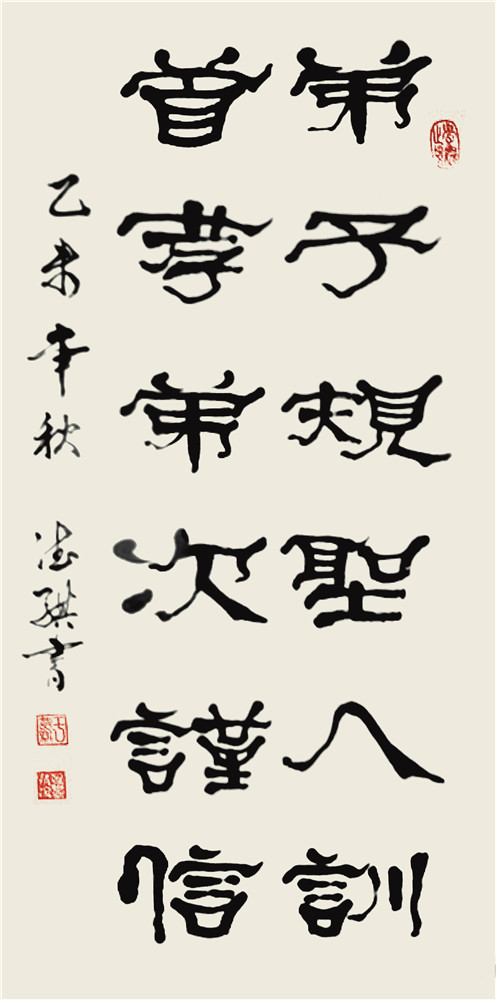 弟子規聖人訓
首孝弟次謹信
乙未年秋 德書